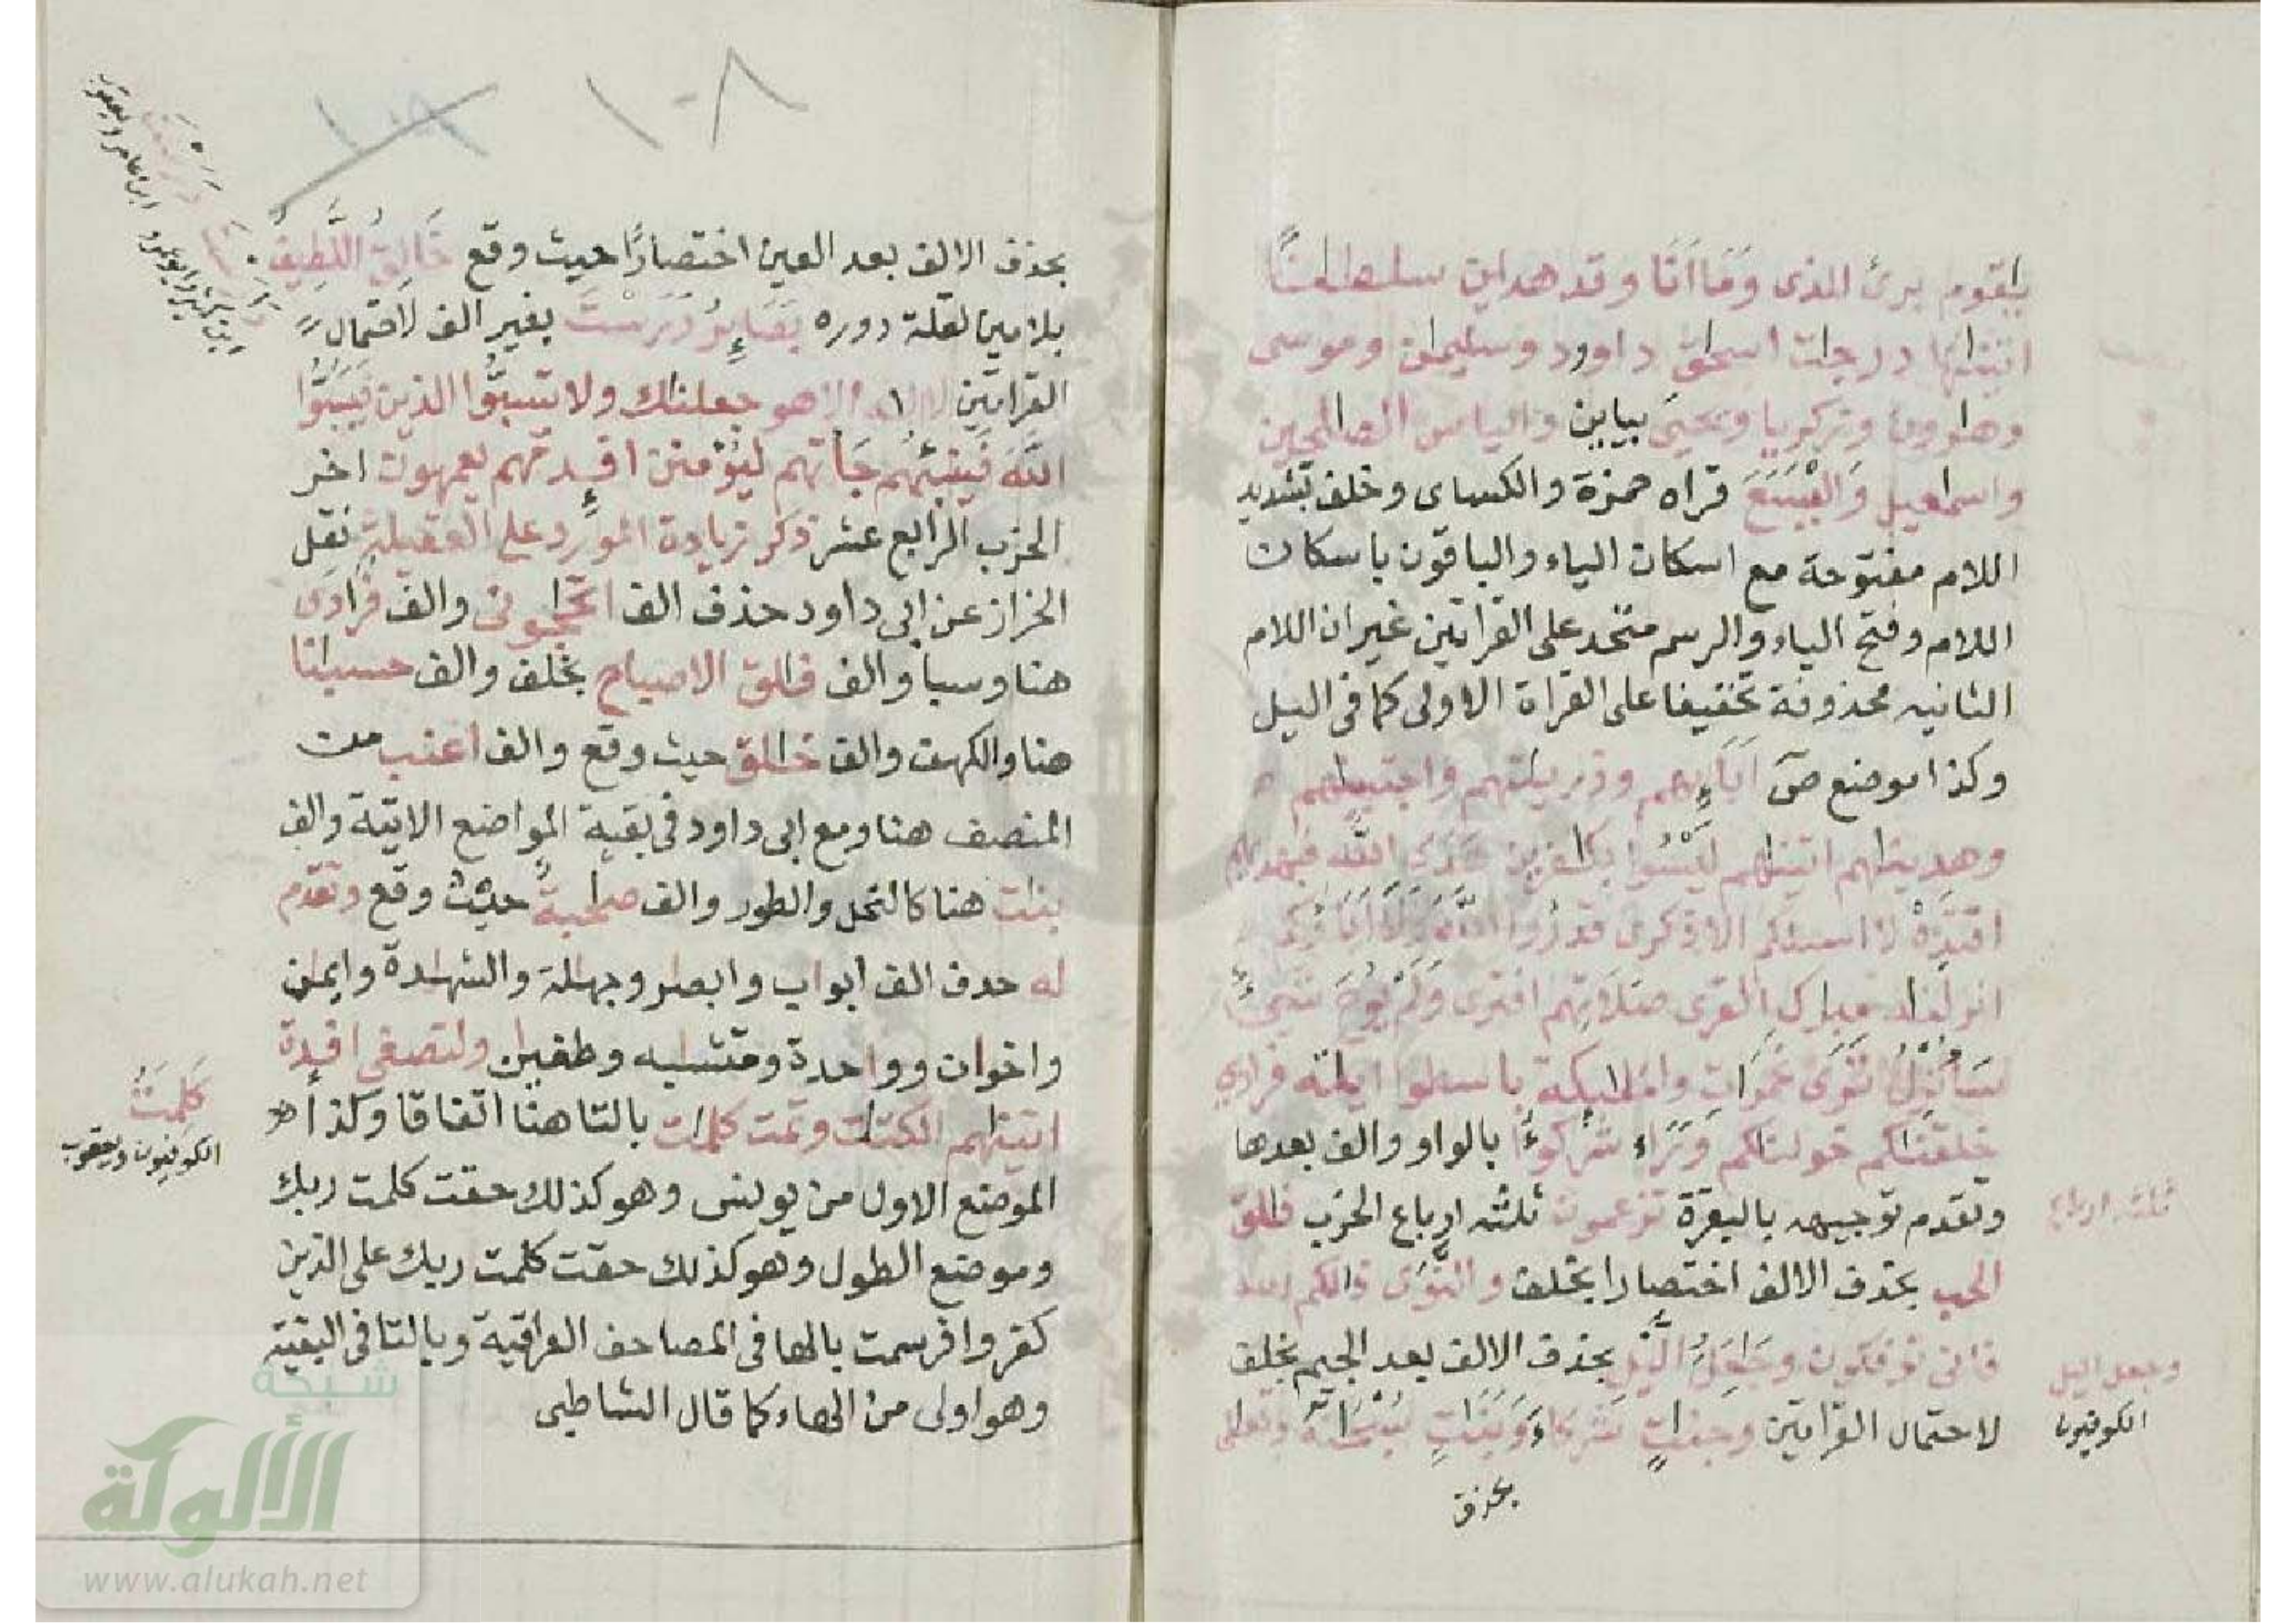 يقوم برئ الذى وَمَا أَنَا وقد هدين سلطنا
اتينها درجت اسحق داوود وسليمن وموسى
وهرون وزكريا ويحيى بيايين والياس الصلحين
واسمعيل وَالْيَسَعَ قراه حمزة والكساى وخلف بتشديد
اللام مفتوحة مع اسكان الياء والباقون باسكان
اللام وفتح الياء والرسم متحد على القراتين غير ان اللام
الثانيه محذوفة تخفيفا على القراة الاولى كما فى اليل
وكذا موضع صٓ ابايهم وذريتهم واجتبينهم
وهدينهم اتينهم لَيْسُوا بكفرين هدى الله فبهديهم
اقتدِهْ لا اسئلكم الا ذكرى قدروا الله
انزلنه مبرك القرى صلاتهم افترى وَلَمْ يُوحَ شيءٌ
سَأُنزِلُ تَرَى غَمَرَات والملىكة باسطوا ايته فرادى
خلقنكم خولنكم وَرَاء شركوا بالواو والف بعدها
وتقدم توجيهه بالبقرة تزعمون ثلثه ارباع الحزب فلق
الحب بحذف الالف اختصارا بخلف والنَّوَى ذلكم الله
فانى توفكون وجعلُ الَّيْلِ بحذف الالف بعد الجيم بخلف
لاحتمال القراتين وجنت شركاءَ وَبَنَتٍ سُبْحَنَهُ وتعلى
بحذف
ثلثه ارباع
وجعل اليل
الكوفيون
١٠٨
بحذف الالف بعد العين اختصارًا حيث وقع خَالِقُ اللَّطِيفُ
بلامين لقلة دوره بَصَايِرُ دَرَسْتَ بغير الف لاحتمال
القراتين لا اله الا هو جعلنك ولا تسبُّوا الذين فَيَسُبُّوا
اللَّهَ فَيُنَبِّئُهُم جَاتهم ليُؤمنن افـِٕدتهم يعمهون اخر
الحزب الرابع عشر ذكر زيادة المورد على العقيلة نقل
الخراز عن ابى داود حذف الف اتحجونى والف فرادى
هنا وسبا والف فلق الاصباح بخلف والف حسبنا
هنا والكهف والف خلق حيث وقع والف اعنب من
المنصف هنا ومع ابى داود فى بقية المواضع الاتية والف
بنت هنا كالنحل والطور والف صحبة حيث وقع وتقدم
له حذف الف ابواب وابصر وجهلة والشهدة وايمن
واخوان وواحدة ومتشبه وطغين ولتصغى افـِٕدة
اتينهم الكتب وتمت كلمت بالتا هنا اتفاقا وكذا
الموضع الاول من يونس وهو كذلك حقت كلمت ربك
وموضع الطول وهو كذلك حقت كلمت ربك على الذين
كفروا فرسمت بالها فى المصاحف العراقية وبالتا فى البقية
وهو اولى من الهاء كما قال الشاطبى
كَلِمَتُ
الكوفيون ويعقوب
ابن كثير وابوعمرو
ابن عامر ويعقوب
شبكة
الألوكة
www.alukah.net